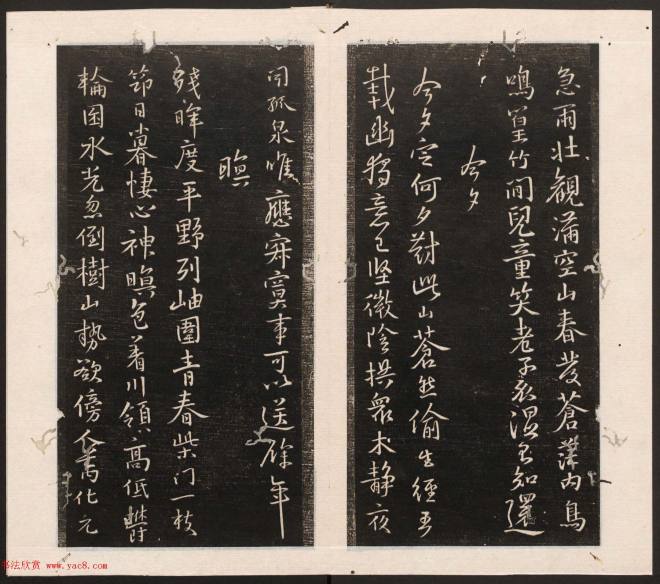 急雨壯觀滿空山春發蒼莽内鳥
鳴篁竹間兒童笑老子衣濕不知還
今夕
今夕定何夕對此山蒼然偷生經五
載幽獨意已堅微陰拱衆木静夜
聞孤泉唯應寂寞事可以送餘年
暝
殘暉度平野列岫圍青春柴門一枝
筇日暮悽心神暝色著川領高低
輪囷水光忽倒樹山勢欲傍人萬化元
书法欣赏 www.yac8.com